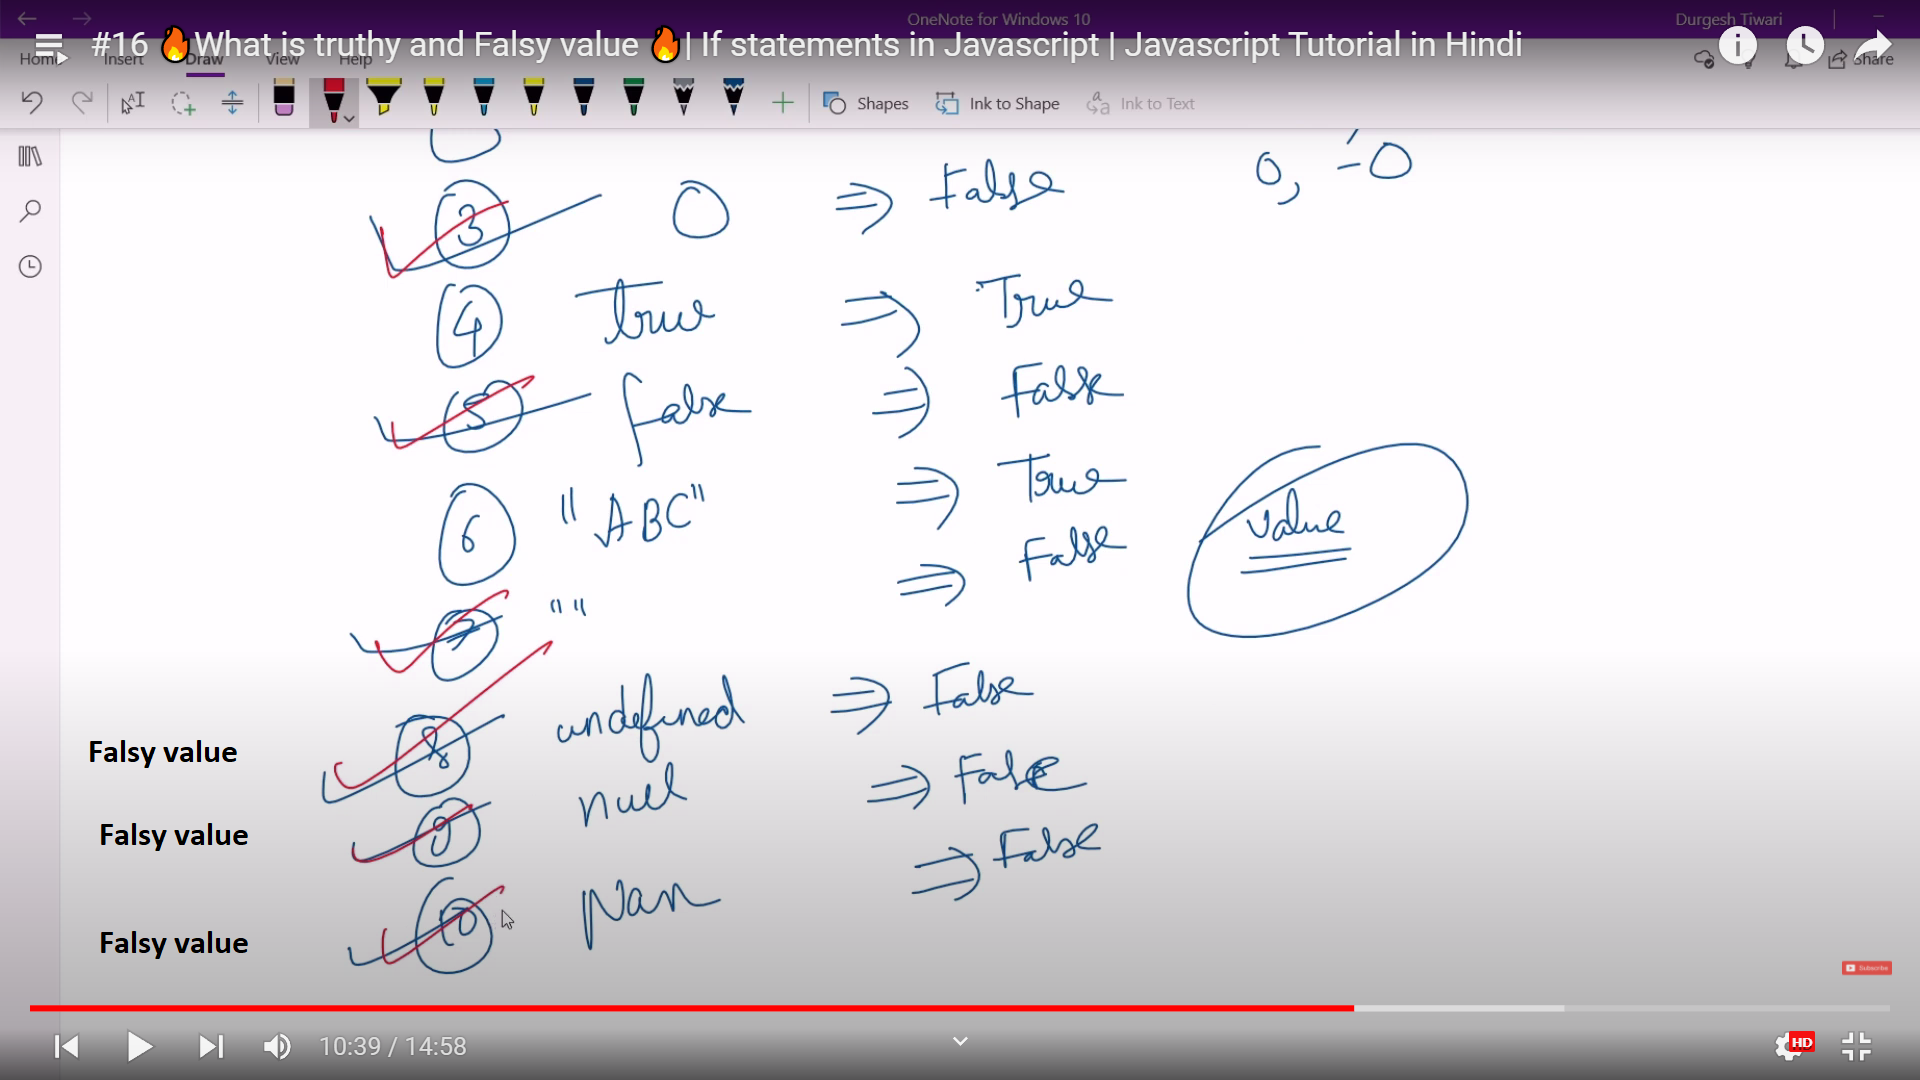 OneNote for Windows 10
Durgesh Tiwari
#16 🔥What is truthy and Falsy value 🔥| If statements in Javascript | Javascript Tutorial in Hindi
Home Insert Draw View Help
Share
Shapes Ink to Shape Ink to Text
0, -0
3 0 ⇒ False
4 true ⇒ True
5 false ⇒ False
6 "ABC" ⇒ True
value
7 "" ⇒ False
8 undefined ⇒ False
Falsy value
9 null ⇒ False
Falsy value
10 Nan ⇒ False
Falsy value
Subscribe
10:39 / 14:58
HD